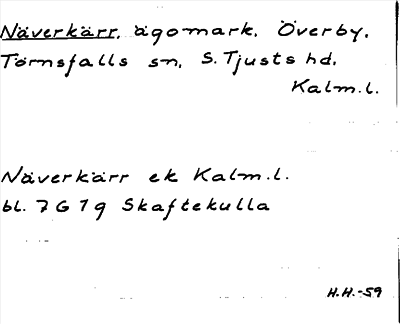 Näverkärr, ägomark, Överby,
Törnsfalls sn, S. Tjusts hd.
Kalm. l.
Näverkärr ek Kalm. l.
bl. 7 G 1 g Skaftekulla
H.H.-59